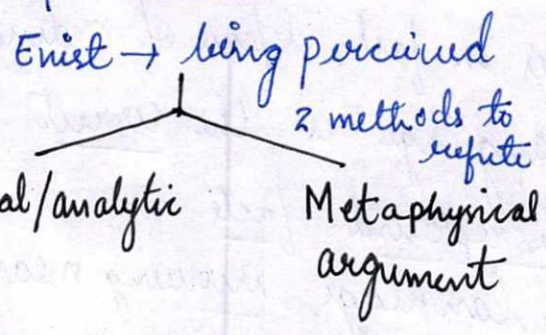 Exist → being perceived
2 methods to
refute
al/analytic
Metaphysical
argument